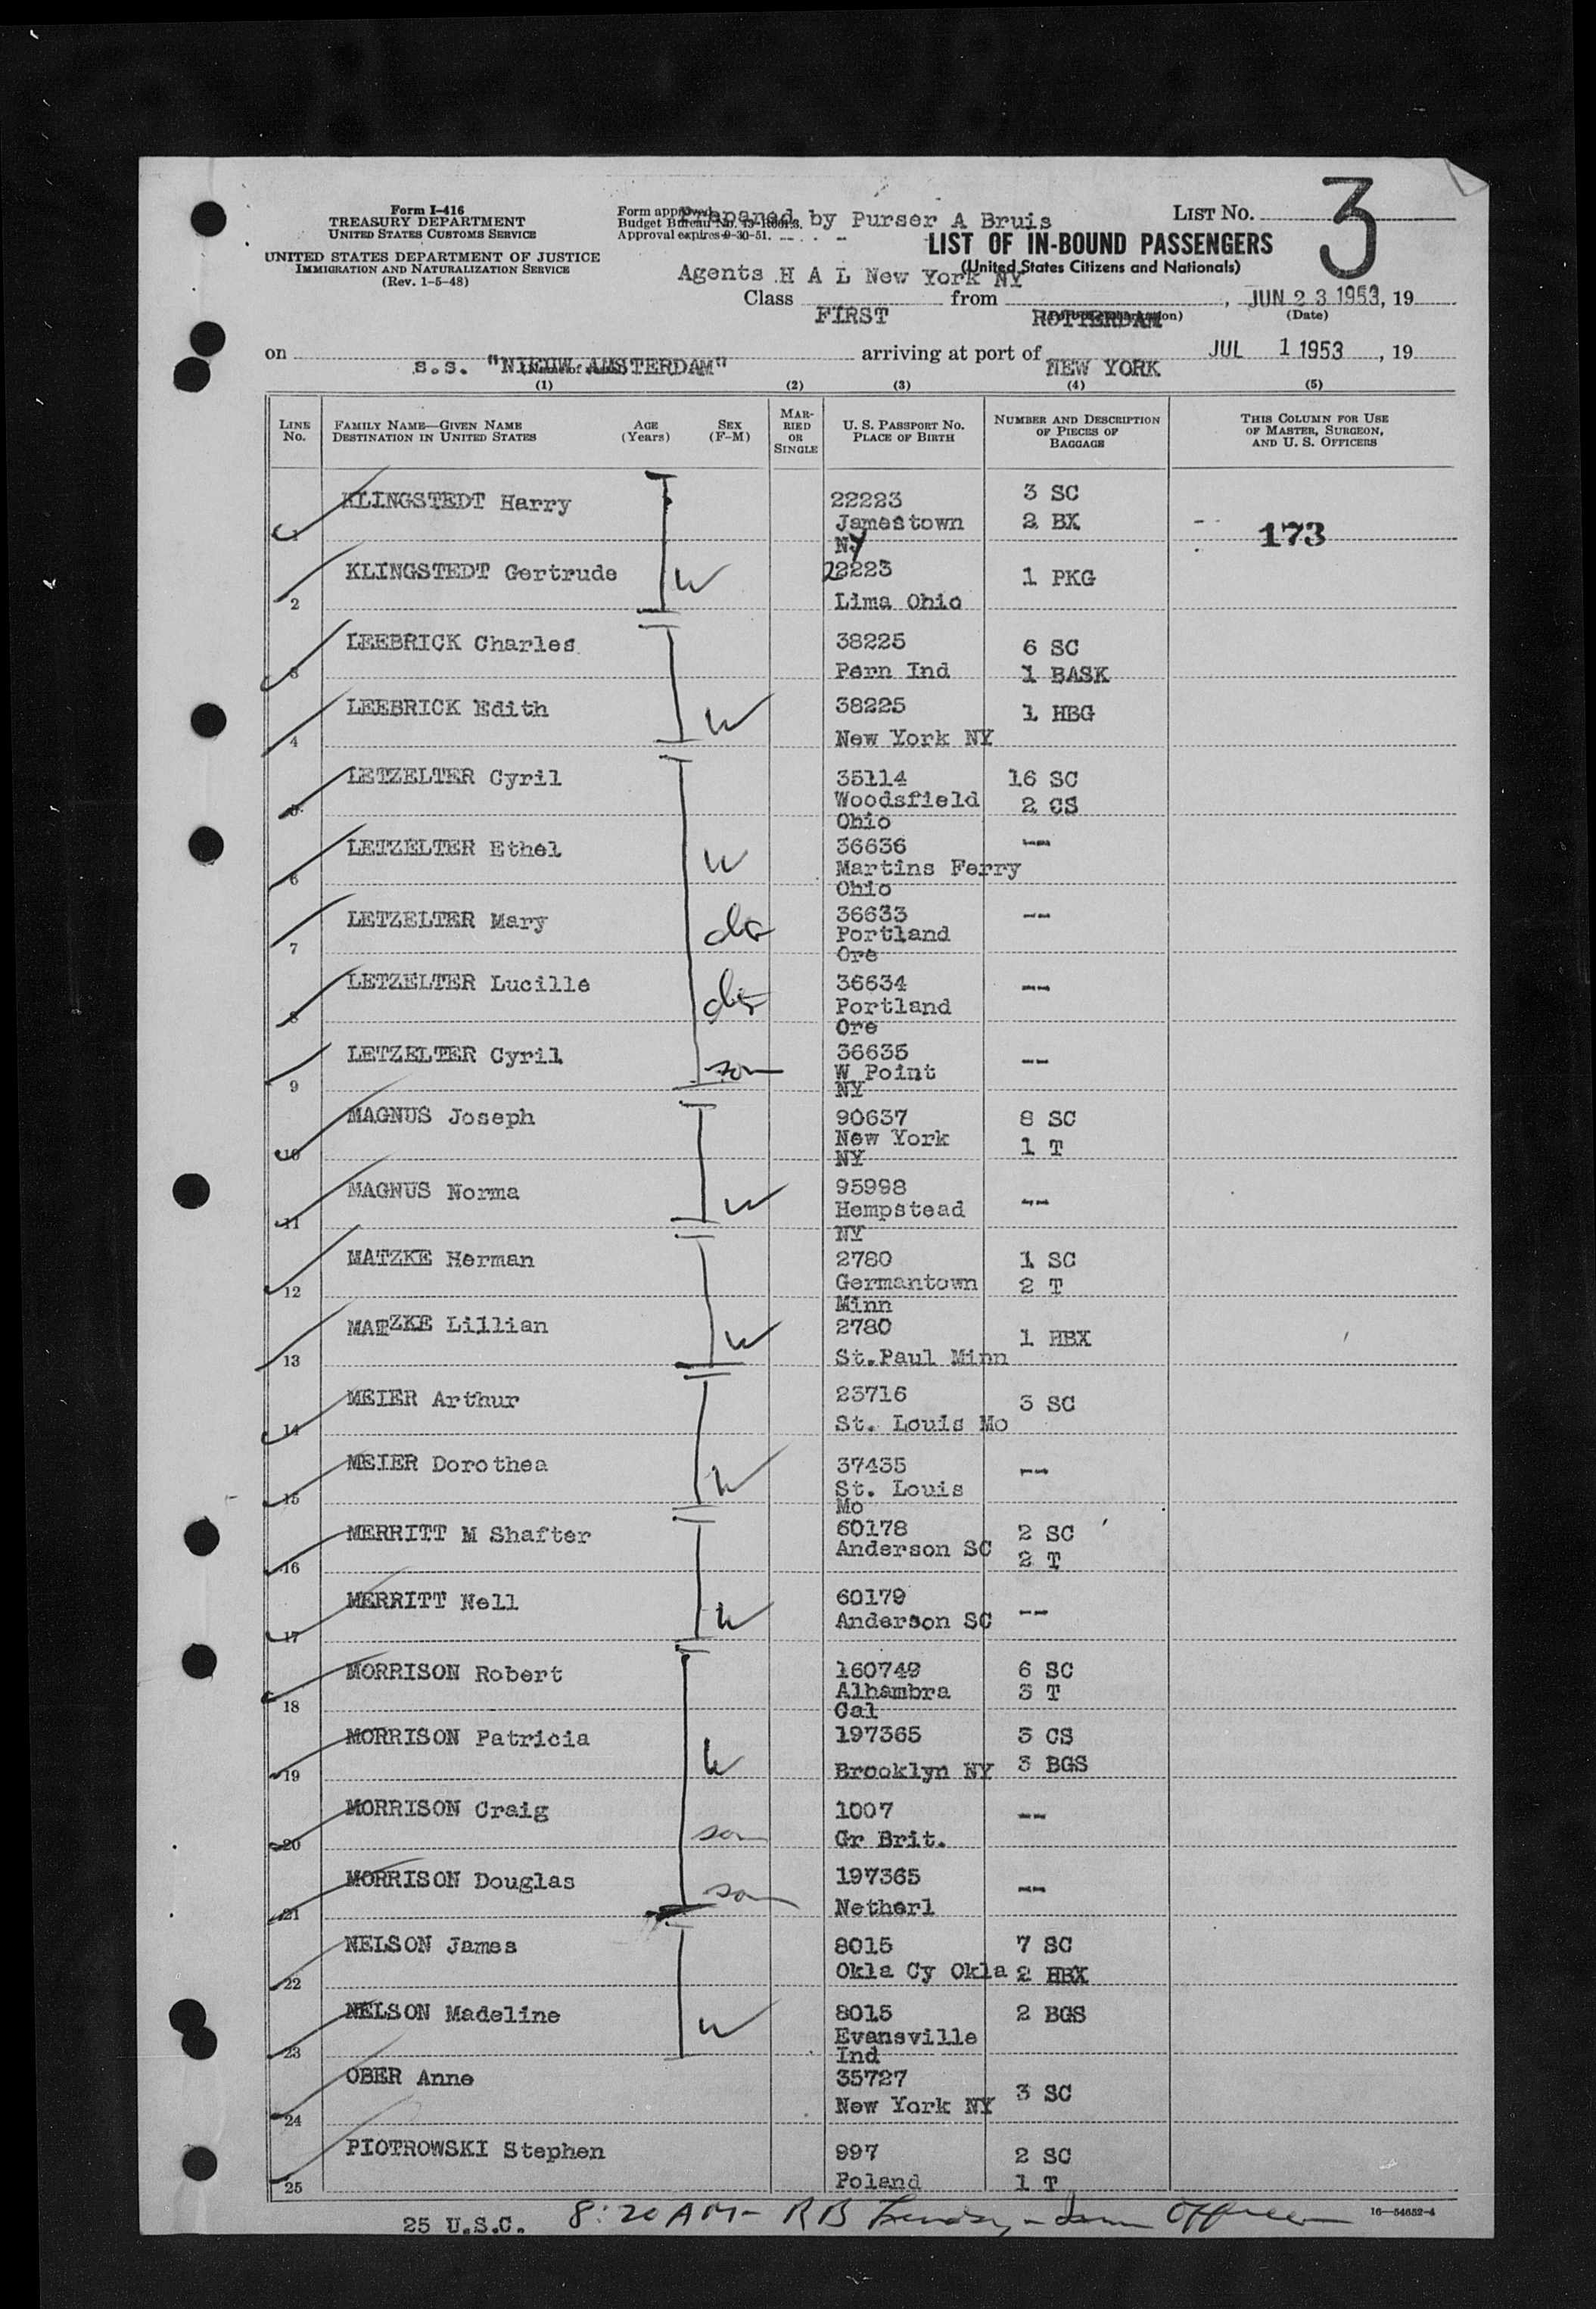 Form I-416
TREASURY DEPARTMENT
UNITED STATES CUSTOMS SERVICE
UNITED STATES DEPARTMENT OF JUSTICE
IMMIGRATION AND NATURALIZATION SERVICE
(Rev. 1-5-48)
Form approved.
Budget Bureau No.
Approval expires 9-30-51.
Prepared by Purser A Bruis
LIST NO. 3
LIST OF IN-BOUND PASSENGERS
(United States Citizens and Nationals)
Agents H A L New York NY
Class FIRST from ROTTERDAM, JUN 23 1953, 19
(Date)
on s.s. "NIEUW AMSTERDAM" arriving at port of NEW YORK JUL 1 1953, 19
(1) (2) (3) (4) (5)
LINE No. FAMILY NAME—GIVEN NAME DESTINATION IN UNITED STATES AGE (Years) SEX (F-M) MARRIED OR SINGLE U. S. PASSPORT NO. PLACE OF BIRTH NUMBER AND DESCRIPTION OF PIECES OF BAGGAGE THIS COLUMN FOR USE OF MASTER, SURGEON, AND U. S. OFFICERS
1 KLINGSTEDT Harry 22223 Jamestown NY 3 SC 2 BX 173
2 KLINGSTEDT Gertrude W 22223 Lima Ohio 1 PKG
3 LEEBRICK Charles 38225 Pern Ind 6 SC 1 BASK
4 LEEBRICK Edith W 38225 New York NY 1 HBG
5 LETZELTER Cyril 35114 Woodsfield Ohio 16 SC 2 CS
6 LETZELTER Ethel W 36636 Martins Ferry Ohio --
7 LETZELTER Mary da 36633 Portland Ore --
8 LETZELTER Lucille da 36634 Portland Ore --
9 LETZELTER Cyril son 36635 W Point NY --
10 MAGNUS Joseph 90637 New York NY 8 SC 1 T
11 MAGNUS Norma W 95998 Hempstead NY --
12 MATZKE Herman 2780 Germantown Minn 1 SC 2 T
13 MATZKE Lillian W 2780 St.Paul Minn 1 HBX
14 MEIER Arthur 23716 St. Louis Mo 3 SC
15 MEIER Dorothea W 37435 St. Louis Mo --
16 MERRITT M Shafter 60178 Anderson SC 2 SC 2 T
17 MERRITT Nell W 60179 Anderson SC --
18 MORRISON Robert 160749 Alhambra Cal 6 SC 3 T
19 MORRISON Patricia W 197365 Brooklyn NY 3 CS 3 BGS
20 MORRISON Craig son 1007 Gr Brit. --
21 MORRISON Douglas son 197365 Netherl --
22 NELSON James 8015 Okla Cy Okla 7 SC 2 HBX
23 NELSON Madeline W 8015 Evansville Ind 2 BGS
24 OBER Anne 35727 New York NY 3 SC
25 PIOTROWSKI Stephen 997 Poland 2 SC 1 T
25 U.S.C. 8:20 AM - R B Officer
16—54652-4